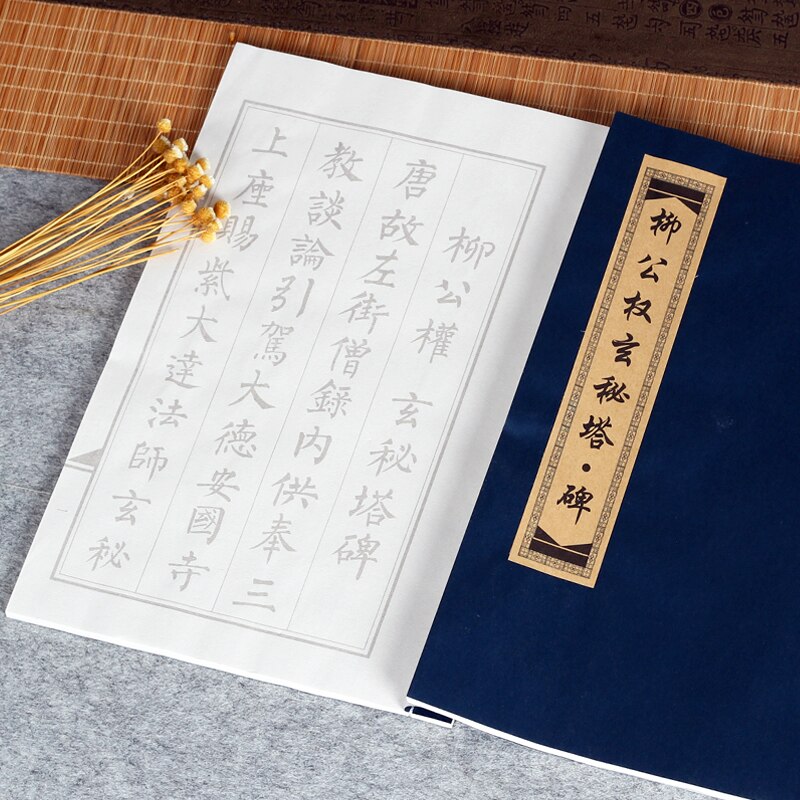 柳公權 玄秘塔碑
唐故左街僧錄内供奉三
教談論引駕大德安國寺
上座賜紫大達法師玄秘
柳公权玄秘塔·碑